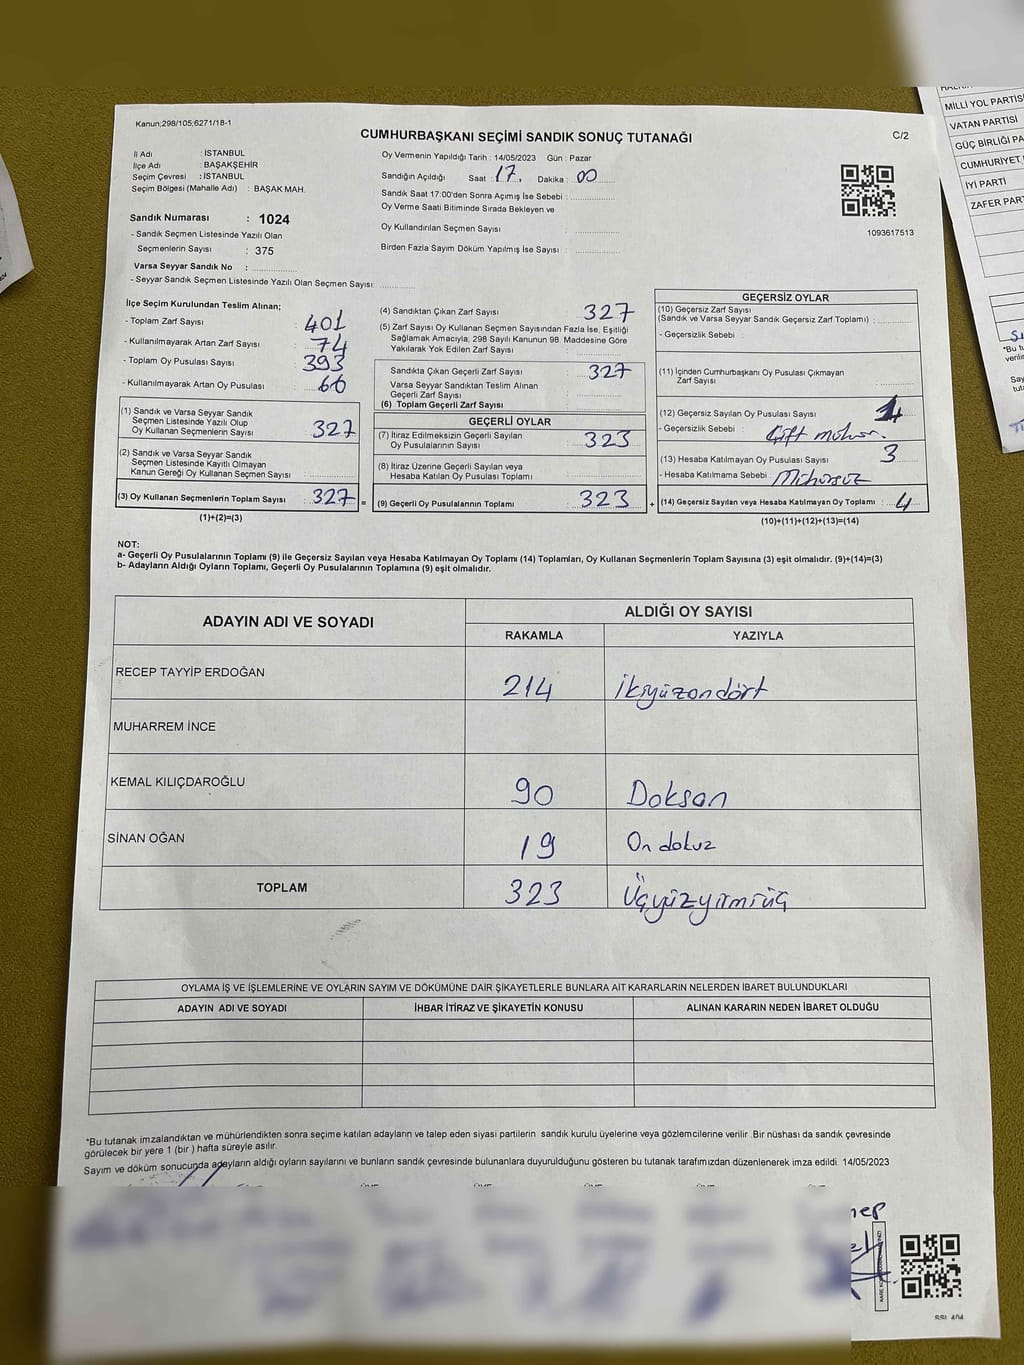 Kanun;298/105;6271/18-1
CUMHURBAŞKANI SEÇİMİ SANDIK SONUÇ TUTANAĞI
C/2
İl Adı : İSTANBUL
İlçe Adı : BAŞAKŞEHİR
Seçim Çevresi : İSTANBUL
Seçim Bölgesi (Mahalle Adı) : BAŞAK MAH.
Sandık Numarası : 1024
- Sandık Seçmen Listesinde Yazılı Olan
Seçmenlerin Sayısı : 375
Varsa Seyyar Sandık No :
- Seyyar Sandık Seçmen Listesinde Yazılı Olan Seçmen Sayısı:
Oy Vermenin Yapıldığı Tarih : 14/05/2023 Gün : Pazar
Sandığın Açıldığı Saat : 17. Dakika : 00
Sandık Saat 17:00'den Sonra Açmış İse Sebebi :
Oy Verme Saati Bitiminde Sırada Bekleyen ve
Oy Kullandırılan Seçmen Sayısı :
Birden Fazla Sayım Döküm Yapılmış İse Sayısı :
1093617513
İlçe Seçim Kurulundan Teslim Alınan;
- Toplam Zarf Sayısı : 401
- Kullanılmayarak Artan Zarf Sayısı : 74
- Toplam Oy Pusulası Sayısı : 393
- Kullanılmayarak Artan Oy Pusulası : 66
(1) Sandık ve Varsa Seyyar Sandık
Seçmen Listesinde Yazılı Olup
Oy Kullanan Seçmenlerin Sayısı : 327
(2) Sandık ve Varsa Seyyar Sandık
Seçmen Listesinde Kayıtlı Olmayan
Kanun Gereği Oy Kullanan Seçmen Sayısı :
(3) Oy Kullanan Seçmenlerin Toplam Sayısı : 327 =
(1)+(2)=(3)
(4) Sandıktan Çıkan Zarf Sayısı : 327
(5) Zarf Sayısı Oy Kullanan Seçmen Sayısından Fazla İse, Eşitliği
Sağlamak Amacıyla; 298 Sayılı Kanunun 98. Maddesine Göre
Yakılarak Yok Edilen Zarf Sayısı :
Sandıkta Çıkan Geçerli Zarf Sayısı : 327
Varsa Seyyar Sandıktan Teslim Alınan
Geçerli Zarf Sayısı :
(6) Toplam Geçerli Zarf Sayısı :
GEÇERLİ OYLAR
(7) İtiraz Edilmeksizin Geçerli Sayılan
Oy Pusulalarının Sayısı : 323
(8) İtiraz Üzerine Geçerli Sayılan veya
Hesaba Katılan Oy Pusulası Toplamı :
(9) Geçerli Oy Pusulalarının Toplamı : 323 +
GEÇERSİZ OYLAR
(10) Geçersiz Zarf Sayısı
(Sandık ve Varsa Seyyar Sandık Geçersiz Zarf Toplamı) :
- Geçersizlik Sebebi :
(11) İçinden Cumhurbaşkanı Oy Pusulası Çıkmayan
Zarf Sayısı :
(12) Geçersiz Sayılan Oy Pusulası Sayısı : 1
- Geçersizlik Sebebi : Çift mühür.
(13) Hesaba Katılmayan Oy Pusulası Sayısı : 3
- Hesaba Katılmama Sebebi : Mühürsüz
(14) Geçersiz Sayılan veya Hesaba Katılmayan Oy Toplamı : 4
(10)+(11)+(12)+(13)=(14)
NOT:
a- Geçerli Oy Pusulalarının Toplamı (9) ile Geçersiz Sayılan veya Hesaba Katılmayan Oy Toplamı (14) Toplamları, Oy Kullanan Seçmenlerin Toplam Sayısına (3) eşit olmalıdır. (9)+(14)=(3)
b- Adayların Aldığı Oyların Toplamı, Geçerli Oy Pusulalarının Toplamına (9) eşit olmalıdır.
ADAYIN ADI VE SOYADI
ALDIĞI OY SAYISI
RAKAMLA YAZIYLA
RECEP TAYYİP ERDOĞAN 214 İkiyüzondört
MUHARREM İNCE
KEMAL KILIÇDAROĞLU 90 Doksan
SİNAN OĞAN 19 On dokuz
TOPLAM 323 Üçyüzyirmiüç
OYLAMA İŞ VE İŞLEMLERİNE VE OYLARIN SAYIM VE DÖKÜMÜNE DAİR ŞİKAYETLERLE BUNLARA AİT KARARLARIN NELERDEN İBARET BULUNDUKLARI
ADAYIN ADI VE SOYADI İHBAR İTİRAZ VE ŞİKAYETİN KONUSU ALINAN KARARIN NEDEN İBARET OLDUĞU
*Bu tutanak imzalandıktan ve mühürlendikten sonra seçime katılan adayların ve talep eden siyasi partilerin sandık kurulu üyelerine veya gözlemcilerine verilir. Bir nüshası da sandık çevresinde
görülecek bir yere 1 (bir) hafta süreyle asılır.
Sayım ve döküm sonucunda adayların aldığı oyların sayılarını ve bunların sandık çevresinde bulunanlara duyurulduğunu gösteren bu tutanak tarafımızdan düzenlenerek imza edildi. 14/05/2023
MİLLİ YOL PARTİSİ
VATAN PARTİSİ
GÜÇ BİRLİĞİ PA
CUMHURİYET
İYİ PARTİ
ZAFER PAR